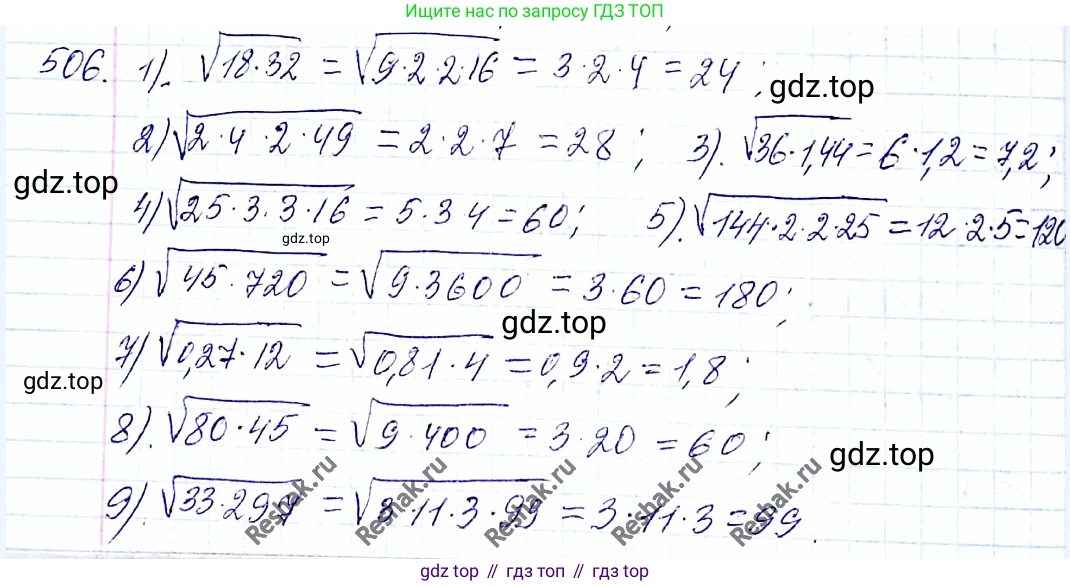 Ищите нас по запросу ГДЗ ТОП
506. 1). √18·32 = √9·2·2·16 = 3·2·4 = 24;
gdz.top
2) √2·4·2·49 = 2·2·7 = 28; 3). √36·1,44 = 6·1,2 = 7,2;
gdz.top
4) √25·3·3·16 = 5·3 4 = 60; 5). √144·2·2·25 = 12·2·5 = 120
gdz.top
6) √45·720 = √9·3600 = 3·60 = 180;
gdz.top
7) √0,27·12 = √0,81·4 = 0,9·2 = 1,8;
gdz.top
8). √80·45 = √9·400 = 3·20 = 60;
gdz.top
9). √33·297 = √3·11·3·99 = 3·11·3 = 99.
Reshak.ru Reshak.ru Reshak.ru Reshak.ru
gdz.top // гдз топ // gdz top